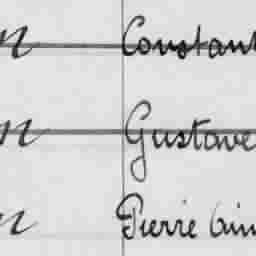 n Constant
n Gustave
n Pierre